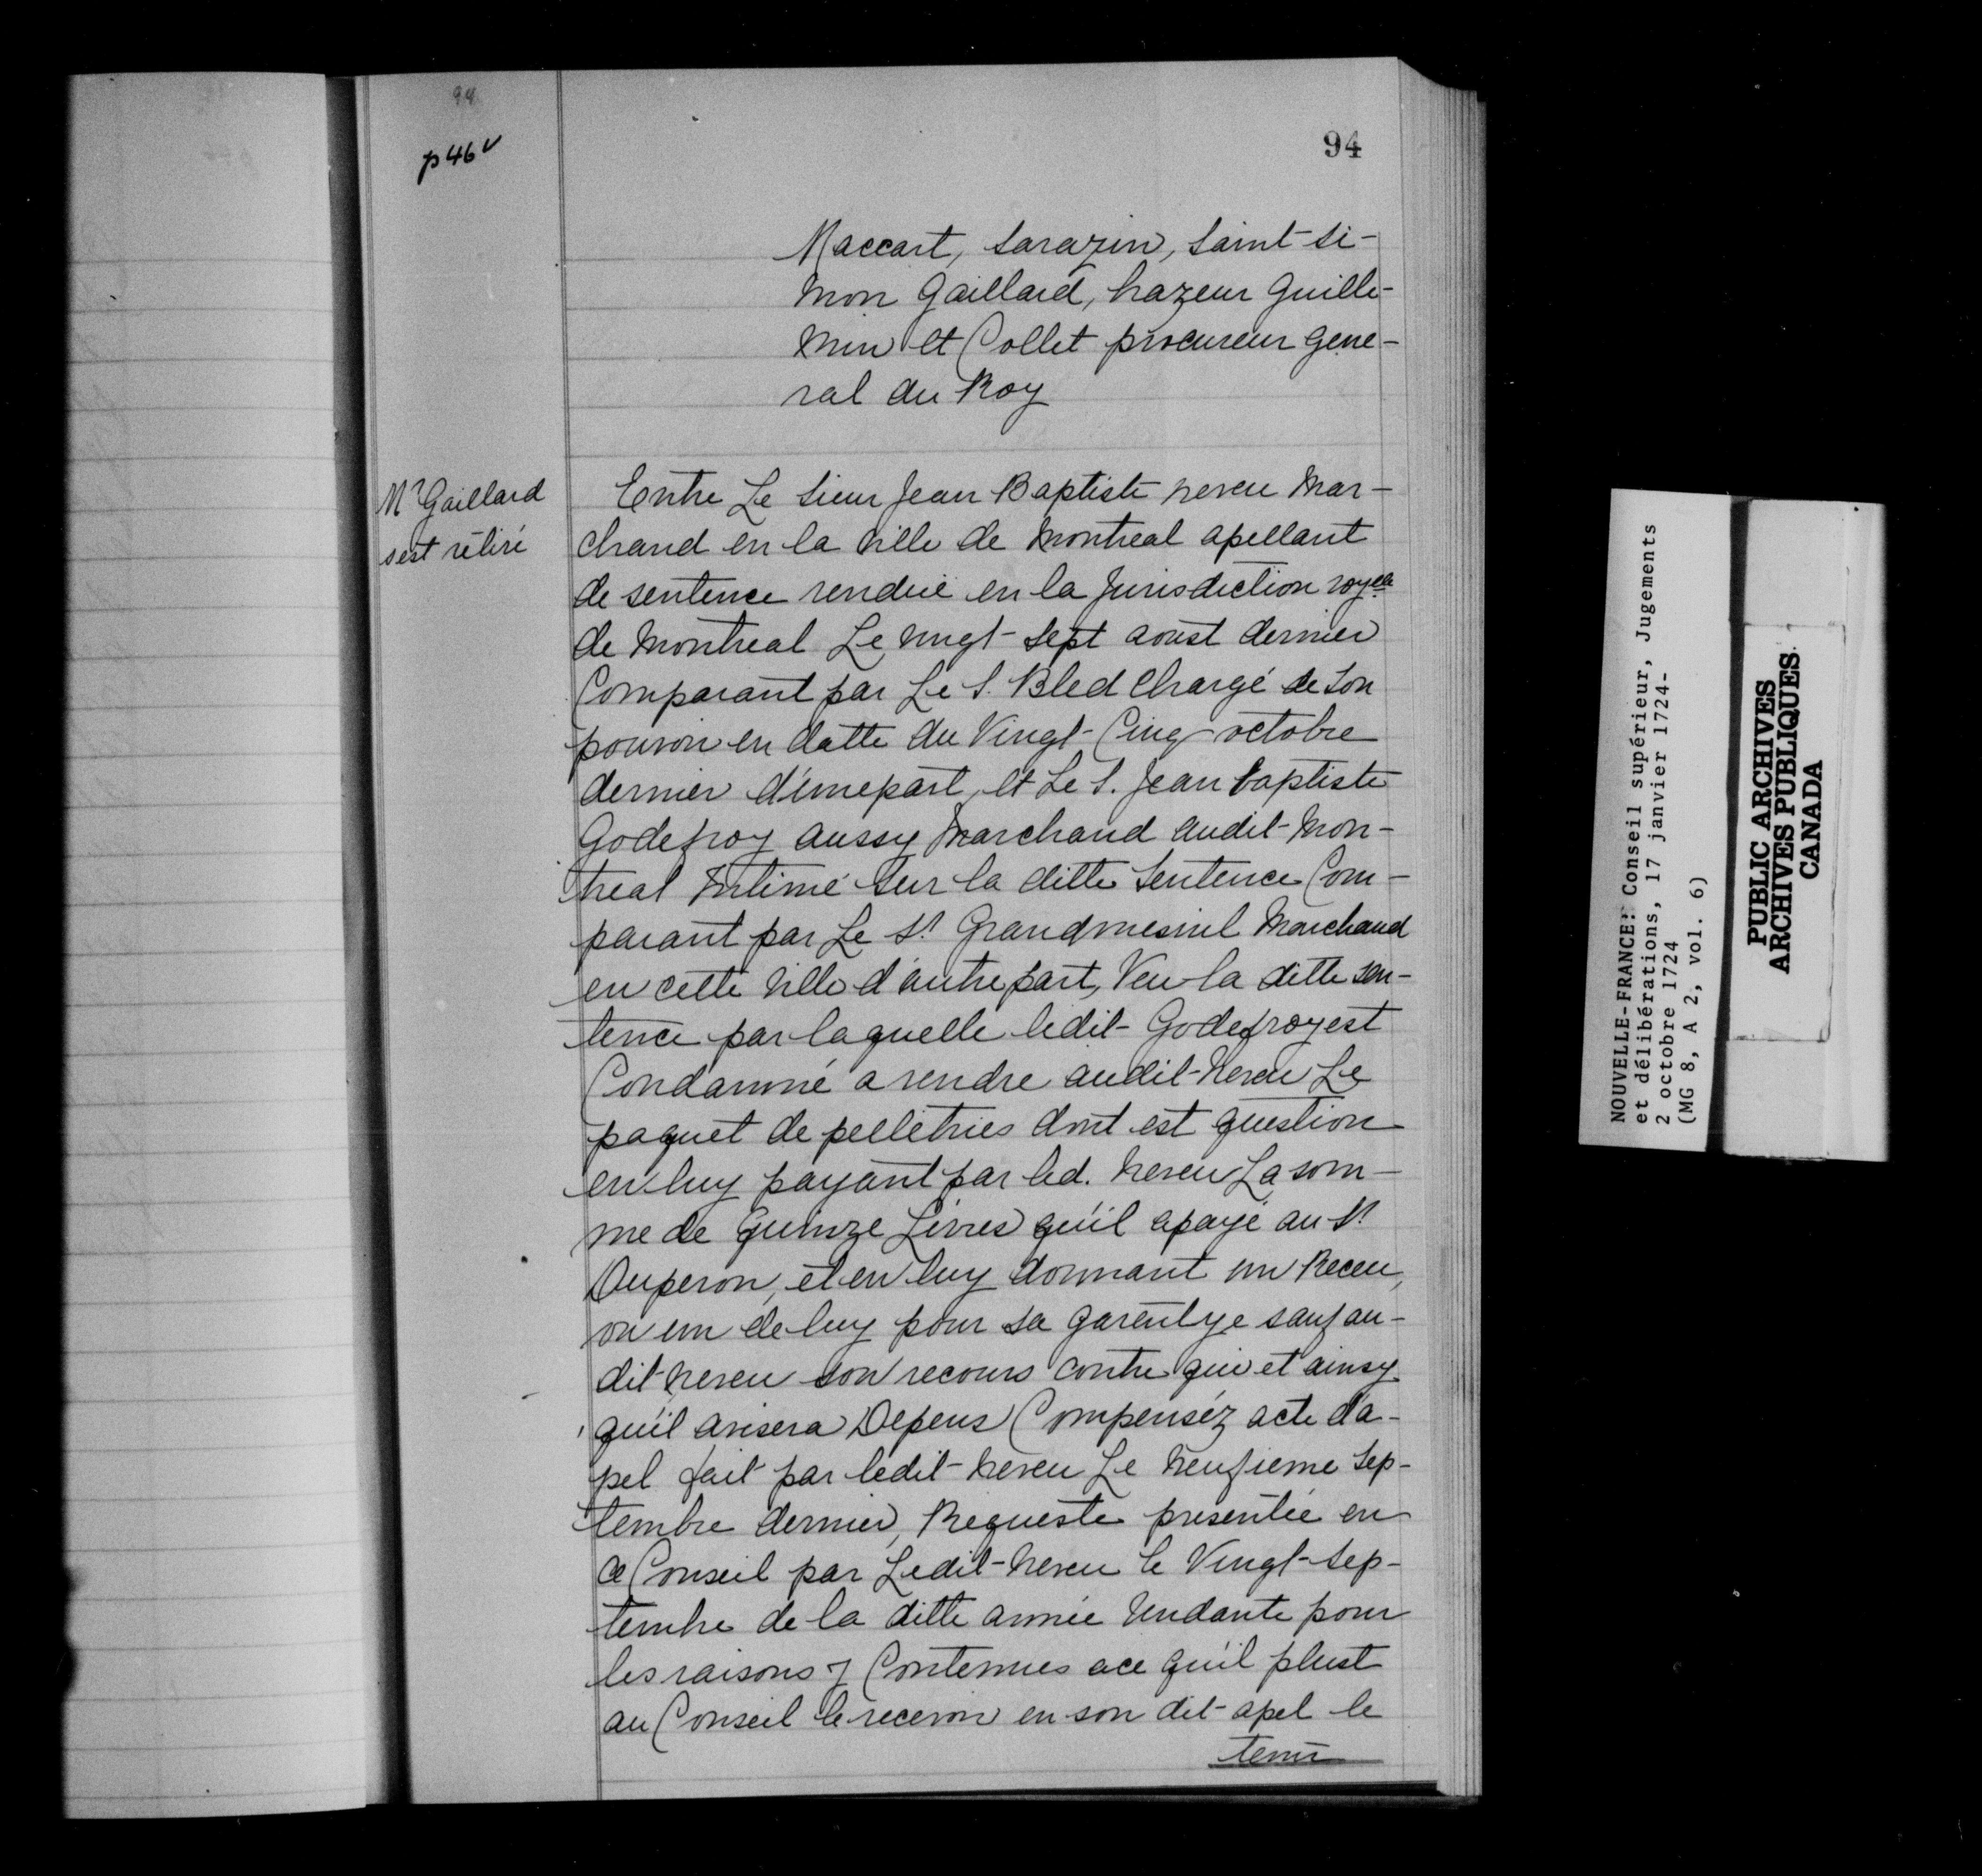 94
p 46 v
94
Maccart, Sarazin, Saint-Si-
mon Gaillard, hazeur Guille-
min et Collet procureur gene-
ral du Roy
Mr Gaillard
s'est rétiré
Entre Le Sieur Jean Baptiste neveu Mar-
chand en la ville de Montreal apellant
de sentence rendüe en la Jurisdiction royelle
de Montreal Le vingt-sept aoust dernier
Comparant par Le S. Bled Chargé de son
pouvoir en datte du Vingt-Cinq octobre
dernier d'unepart, et Le S. Jean baptiste
Godefroy aussy Marchand audit-Mon-
treal Intimé sur la ditte Sentence Com-
parant par Le Sr Grandmesnil Marchand
en cette ville d'autre part, Veu la ditte sen-
tence par laquelle ledit-Godefroy est
Condamné a rendre audit-Neveu Le
paquet de pelletries dont est question
en luy payant par led. Neveu La som-
me de quinze Livres qu'il a payé au Sr
Duperon, et en luy donnant un Receu,
ou un de luy pour sa garentye sauf au-
dit neveu son recours contre qui et ainsy
qu'il avisera Depens Compenséz acte d'a-
pel fait par ledit-neveu Le neufieme Sep-
tembre dernier, Requeste presentée en
ce Conseil par Ledit-Neveu le Vingt-Sep-
tembre de la ditte année tendante pour
les raisons y Contenues ace qu'il plust
au Conseil le recevoir en son dit-apel le
tenir
NOUVELLE-FRANCE: Conseil supérieur, Jugements
et délibérations, 17 janvier 1724-
2 octobre 1724
(MG 8, A 2, vol. 6)
PUBLIC ARCHIVES
ARCHIVES PUBLIQUES
CANADA